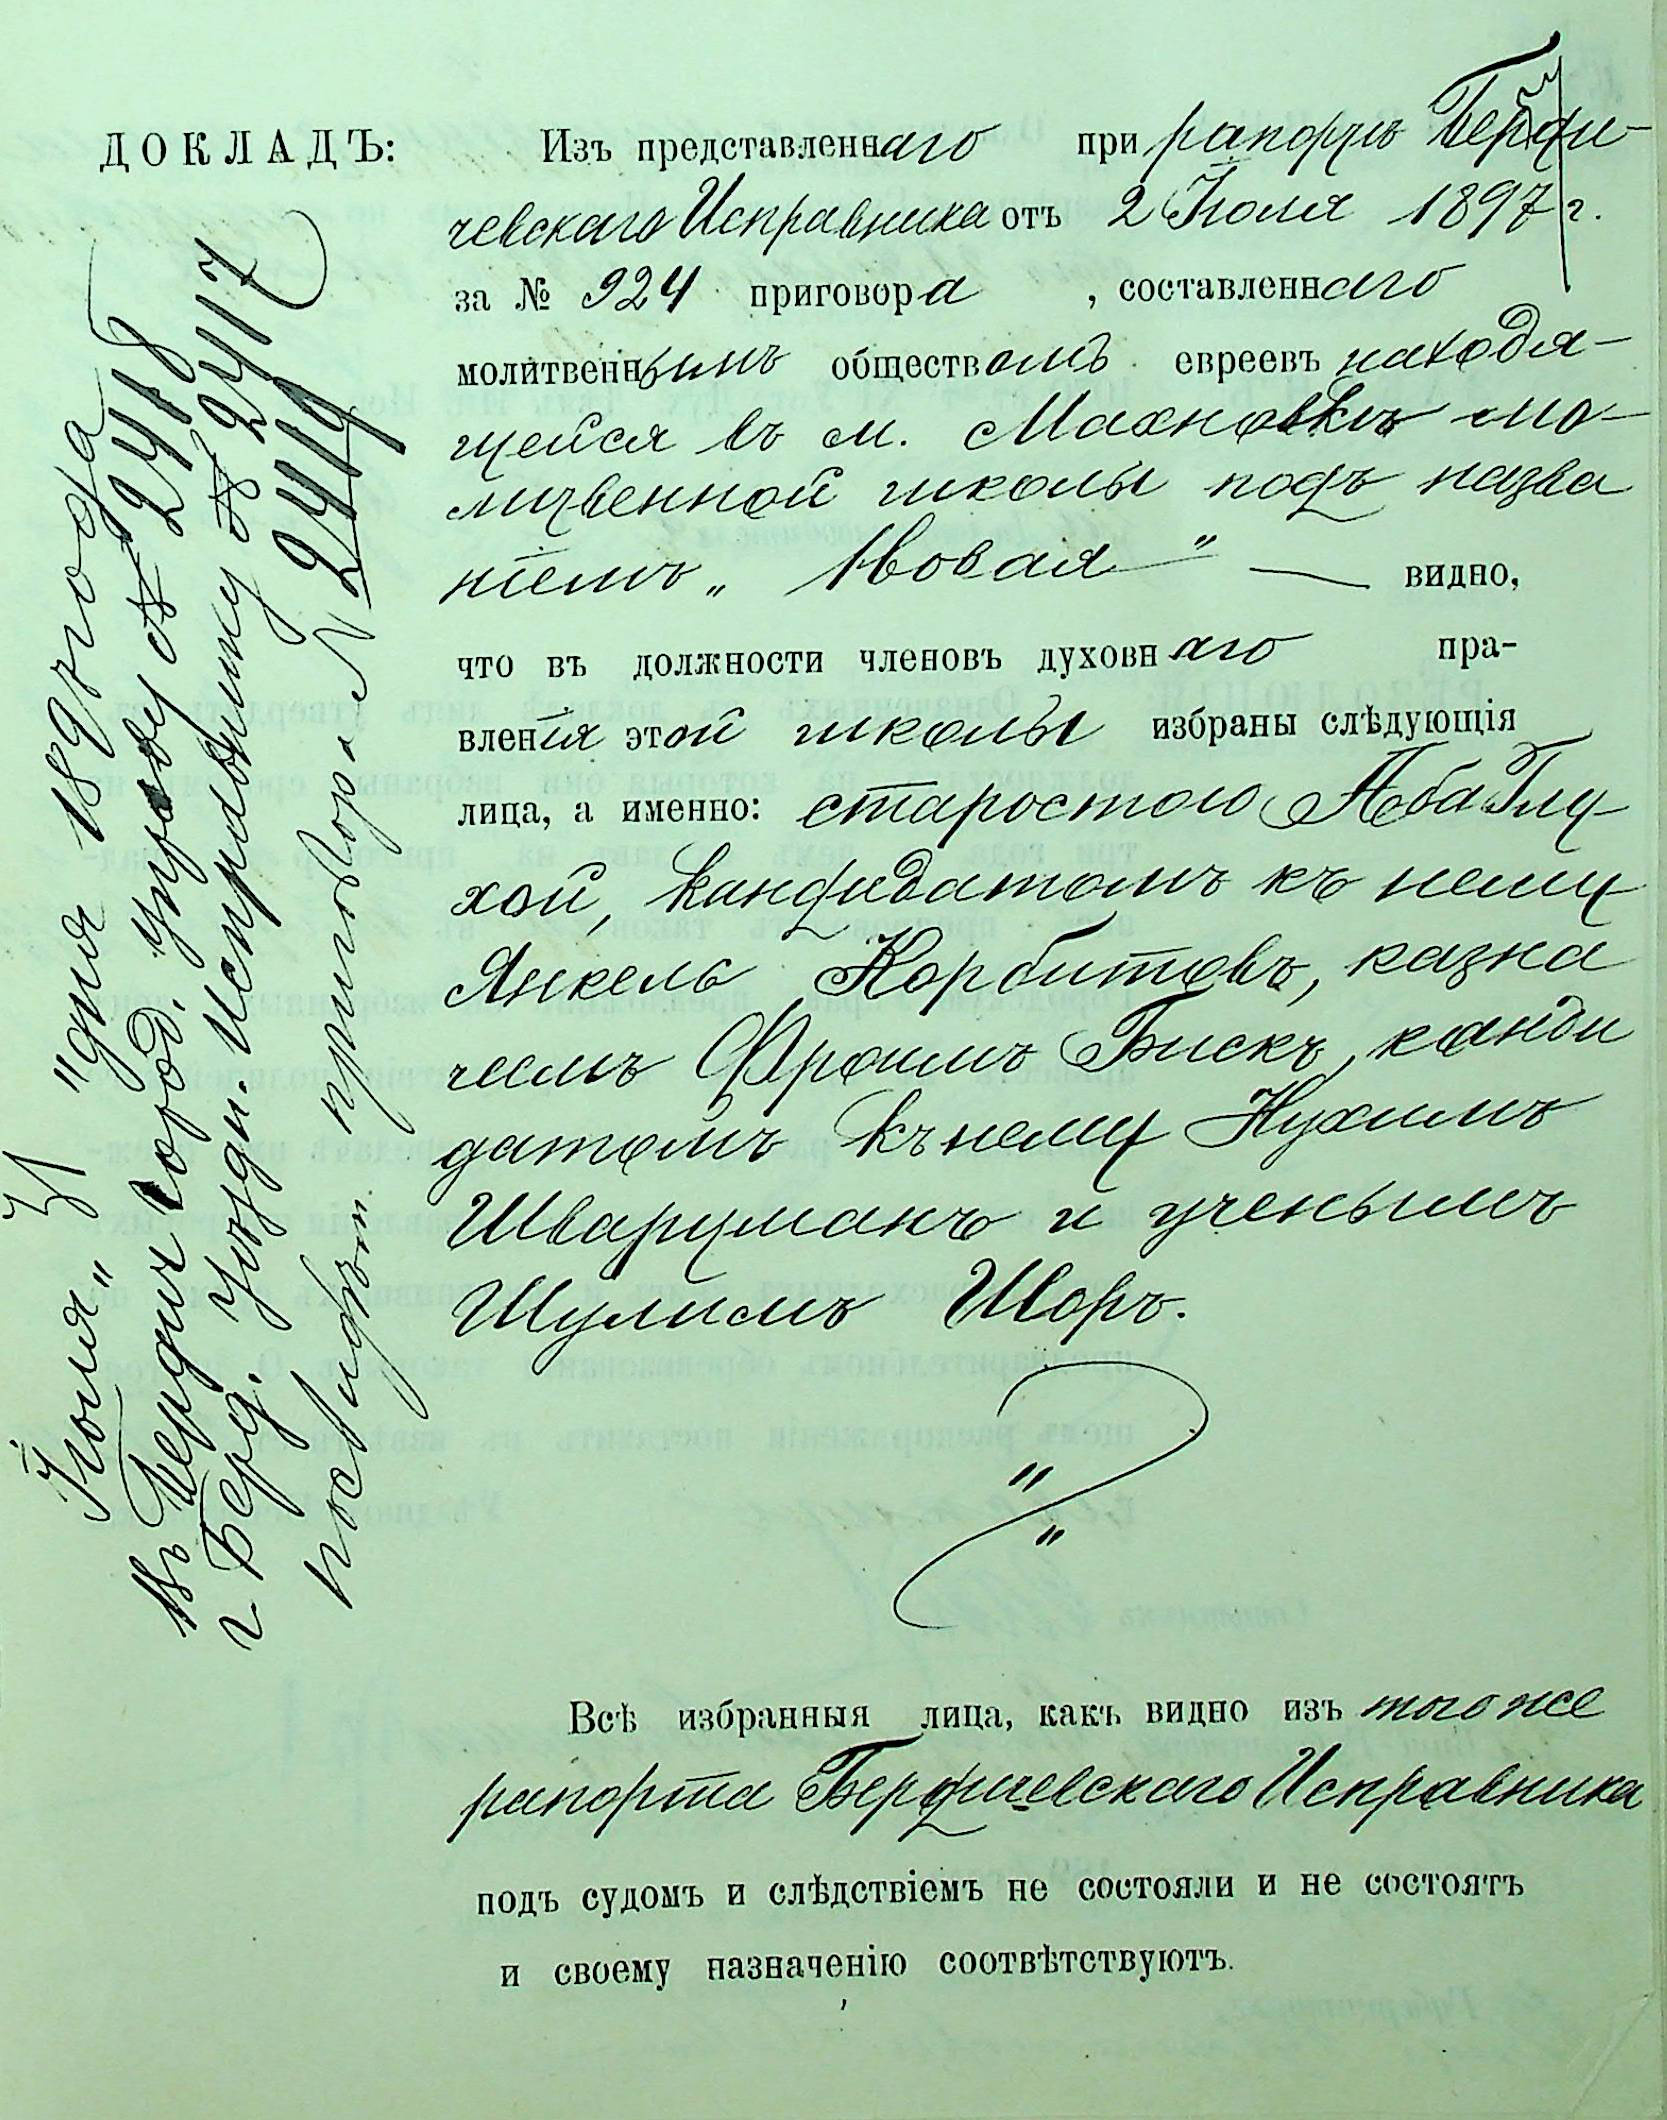 ДОКЛАДЪ:
Изъ представленнаго при рапортѣ Берди-
чевскаго Исправника отъ 2 Іюля 1897 г.
за № 924 приговора , составленнаго
молитвеннымъ обществомъ евреевъ находя-
щейся въ м. Махновкѣ мо-
литвенной школы подъ назва
ніемъ „ Новая " — видно,
что въ должности членовъ духовнаго пра-
вленія этой школы избраны слѣдующія
лица, а именно: старостою Аба Глу-
хой, кандидатомъ къ нему
Янкель Корбитовъ, казна
чеемъ Фроимъ Бискъ, канди
датомъ къ нему Нухимъ
Шварцманъ и ученымъ
Шулимъ Шоръ.
Всѣ избранныя лица, какъ видно изъ того же
рапорта Бердичевскаго Исправника
подъ судомъ и слѣдствіемъ не состояли и не состоятъ
и своему назначенію соотвѣтствуютъ.
Іюля „ 31 " дня 1897 года
въ Бердич город. управу № 2418
г Берд. Уѣздн. Исправнику № 2417
приговора N 2419